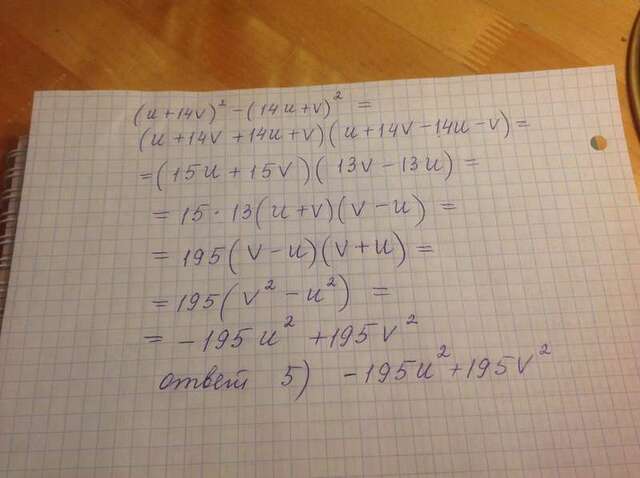 (u+14v)² - (14u+v)² =
(u+14v+14u+v)(u+14v-14u-v) =
= (15u+15v)(13v-13u) =
= 15·13(u+v)(v-u) =
= 195(v-u)(v+u) =
= 195(v²-u²) =
= -195u²+195v²
ответ 5) -195u²+195v²